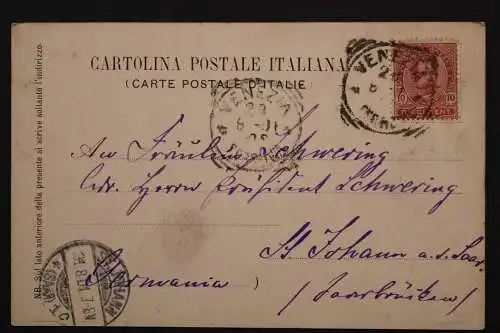 CARTOLINA POSTALE ITALIANA
(CARTE POSTALE D'ITALIE)
NB. Sul lato anteriore della presente si scrive soltanto l'indirizzo.
VENEZIA
VENEZIA
10 10
An Fräulein Schwering
Adr. Herrn Präsident Schwering
St. Johann a. d. Saar.
Germania (Saarbrücken)
ST. JOHANN
* (SAAR) *